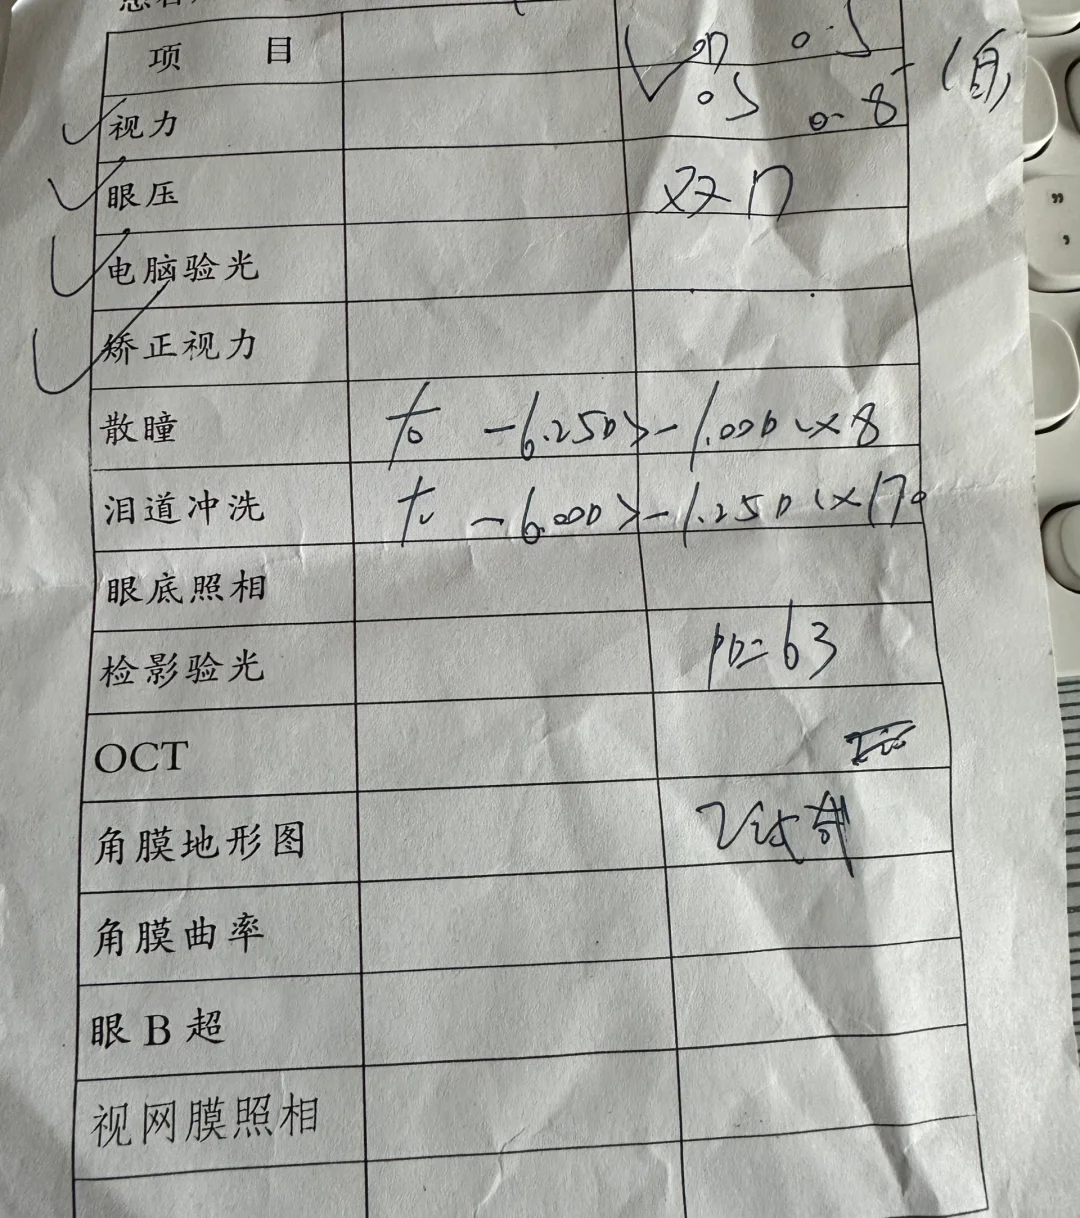 项 目
V OD 0.5
OS 0.8⁻ (自)
视力
眼压
双 n
电脑验光
矫正视力
散瞳
右 -6.25D -1.00D × 8
泪道冲洗
左 -6.00D -1.25D × 170
眼底照相
检影验光
PD=63
OCT
角膜地形图
角膜曲率
眼B超
视网膜照相